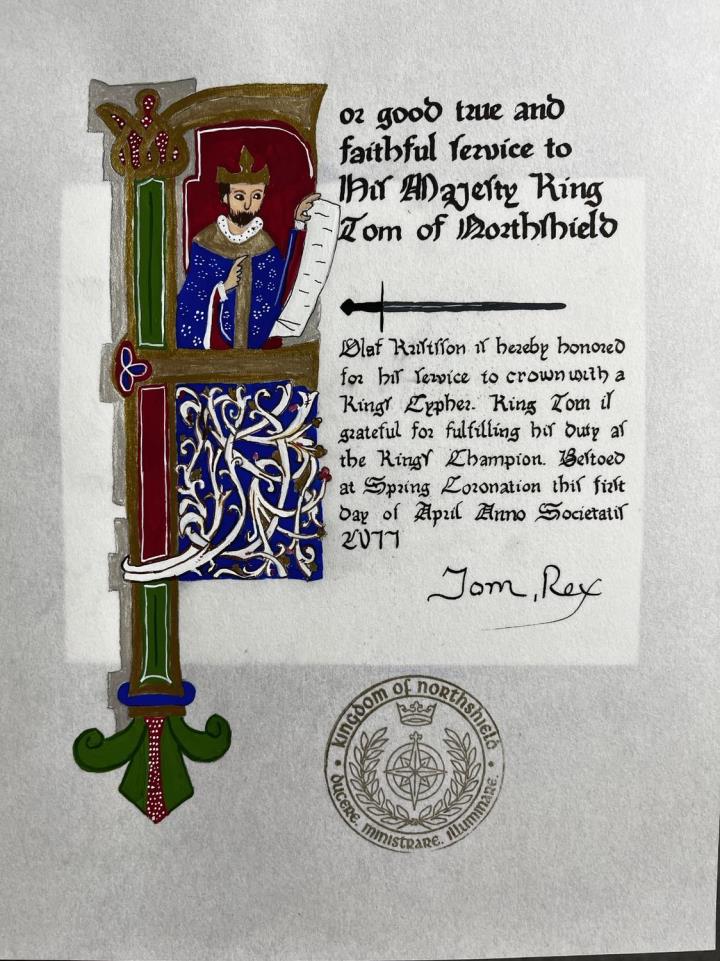 For good true and
faithful service to
His Majesty King
Tom of Northshield
Olaf Kristsson is hereby honored
for his service to crown with a
Kings Cypher. King Tom is
grateful for fulfilling his duty as
the Kings Champion. Bestoed
at Spring Coronation this first
day of April Anno Societatis
LVII
Tom, Rex
Kingdom of Northshield
Ducere. Ministrare. Illuminare.